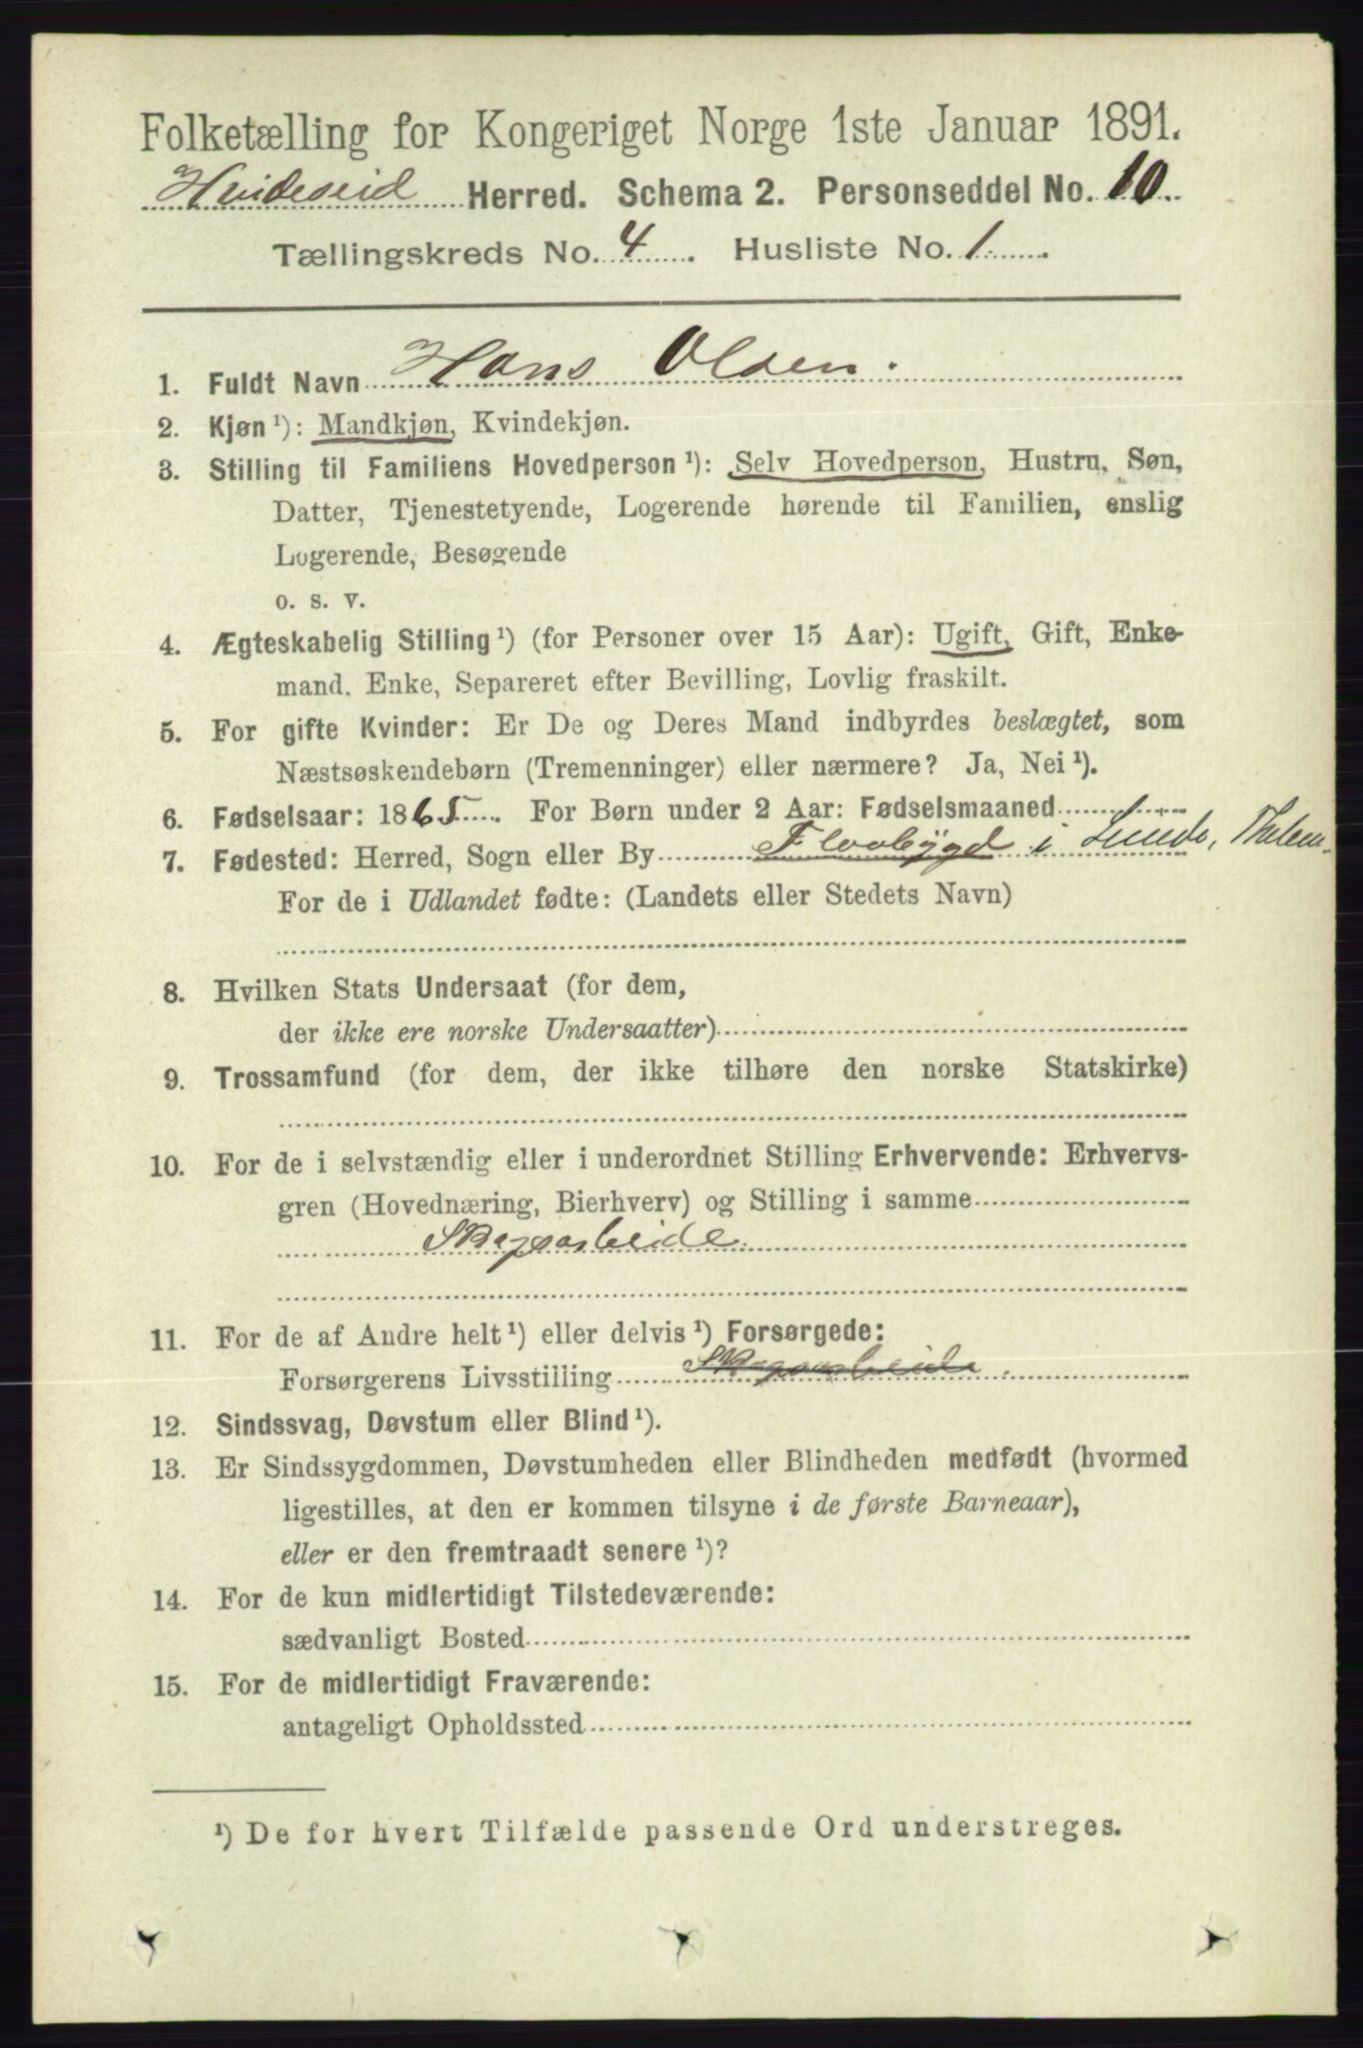 Folketælling for Kongeriget Norge 1ste Januar 1891.
Hvideseid Herred. Schema 2. Personseddel No. 10.
Tællingskreds No. 4. Husliste No. 1.
1. Fuldt Navn Hans Olsen.
2. Kjøn ¹): Mandkjøn, Kvindekjøn.
3. Stilling til Familiens Hovedperson ¹): Selv Hovedperson, Hustru, Søn,
Datter, Tjenestetyende, Logerende hørende til Familien, enslig
Logerende, Besøgende
o. s. v.
4. Ægteskabelig Stilling ¹) (for Personer over 15 Aar): Ugift, Gift, Enke-
mand, Enke, Separeret efter Bevilling, Lovlig fraskilt.
5. For gifte Kvinder: Er De og Deres Mand indbyrdes beslægtet, som
Næstsøskendebørn (Tremenninger) eller nærmere? Ja, Nei ¹).
6. Fødselsaar: 1865. For Børn under 2 Aar: Fødselsmaaned
7. Fødested: Herred, Sogn eller By Flaabygd i Lunde, Thelem.
For de i Udlandet fødte: (Landets eller Stedets Navn)
8. Hvilken Stats Undersaat (for dem,
der ikke ere norske Undersaatter)
9. Trossamfund (for dem, der ikke tilhøre den norske Statskirke)
10. For de i selvstændig eller i underordnet Stilling Erhvervende: Erhvervs-
gren (Hovednæring, Bierhverv) og Stilling i samme
Skogsarbeide.
11. For de af Andre helt ¹) eller delvis ¹) Forsørgede:
Forsørgerens Livsstilling Skogsarbeide.
12. Sindssvag, Døvstum eller Blind ¹).
13. Er Sindssygdommen, Døvstumheden eller Blindheden medfødt (hvormed
ligestilles, at den er kommen tilsyne i de første Barneaar),
eller er den fremtraadt senere ¹)?
14. For de kun midlertidigt Tilstedeværende:
sædvanligt Bosted
15. For de midlertidigt Fraværende:
antageligt Opholdssted
¹) De for hvert Tilfælde passende Ord understreges.